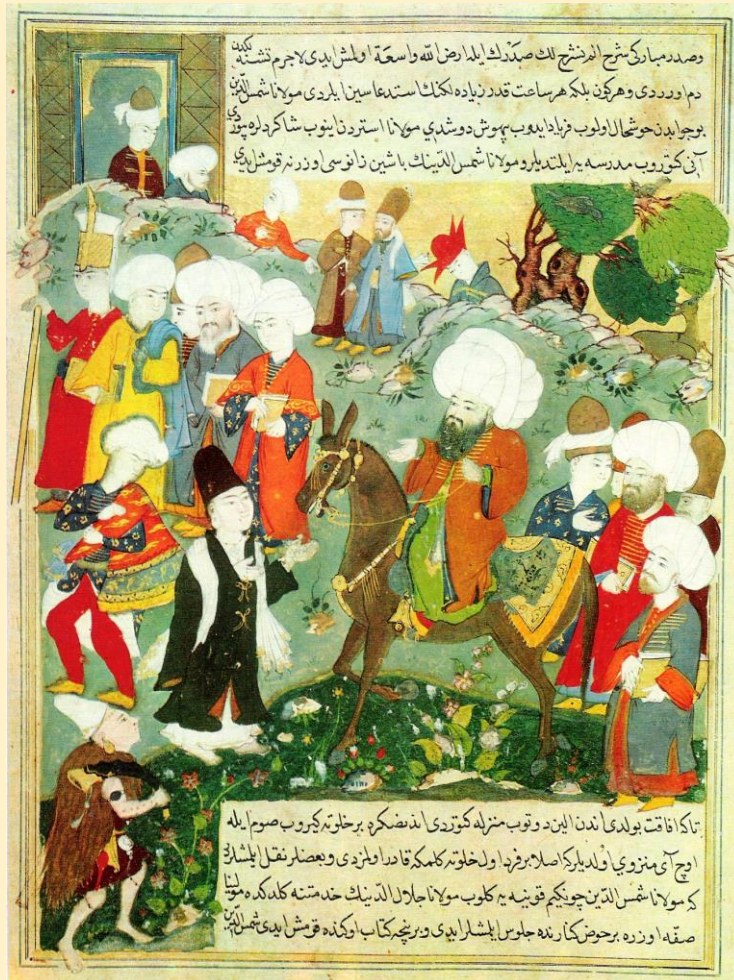 وصدر مباركى شرح الم نشرح لك صدرك ايله ارض الله واسعة اولمش ايدى لاجرم تشنه لكدن
دم اوردى وهركون بلكه هر ساعت قدر زياده لكنك استدعاسين ايلردى مولانا شمس الدين
بو جوابدن خوشحال اولوب فرياد ايدوب بيهوش دوشدى مولانا استردن اينوب شاكردلره بيوردى
آنى كتوروب مدرسه يه ايلتديلر ومولانا شمس الدينك باشين زانوسى اوزرنه قومش ايدى
تاكه افاقت بولدى اندن الين دوتوب منزله كتوردى اندنصكره بر خلوته كيروب صوم ايله
اوچ آى منزوى اولديلر كه اصلا بر فرد اول خلوته كلمكه قادر اولمزدى وبعضلر نقل ايلمشلر
كه مولانا شمس الدين چونكيم قونيه يه كلوب مولانا جلال الدينك خدمتنه كلدكده مولانا
صفه اوزره بر حوض كنارنده جلوس ايلمشلر ايدى وبرنچه كتاب اوكنده قومش ايدى شمس الدين